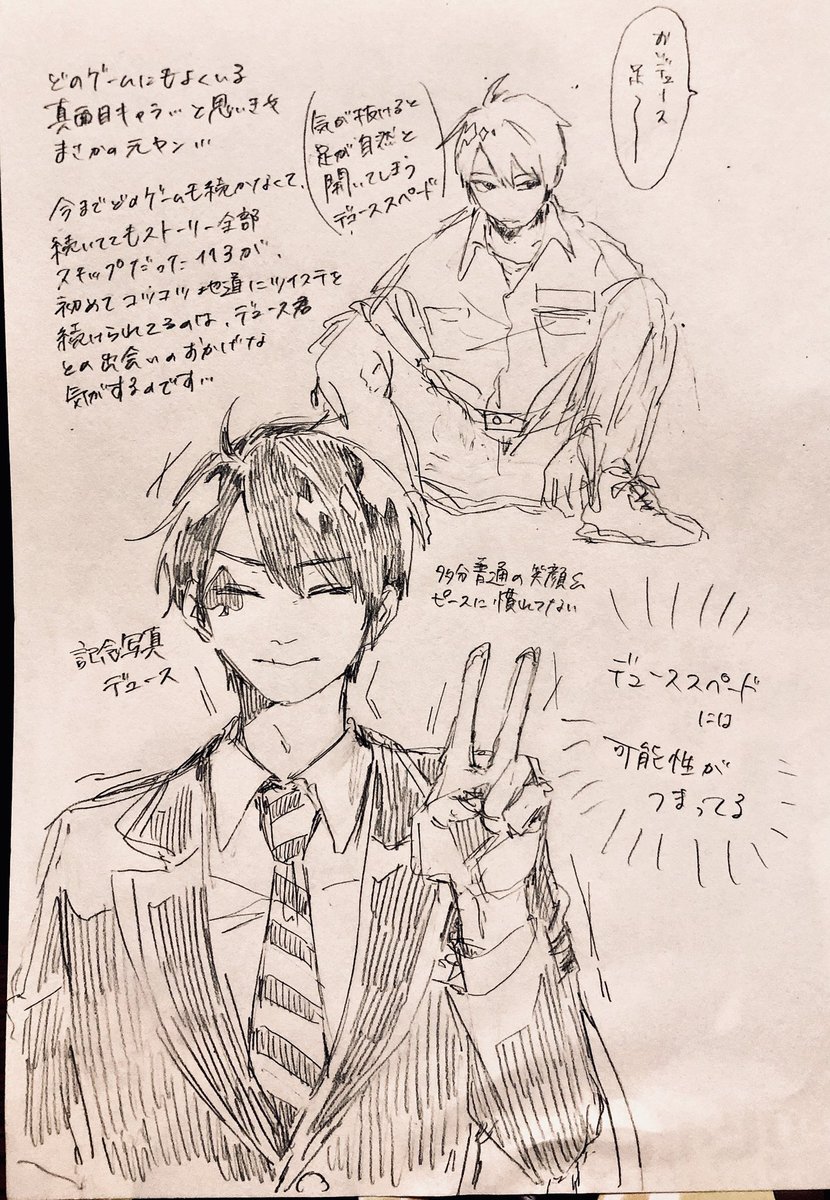 どのゲームにもよくいる
真面目キャラ…と思いきや
まさかの元ヤン…
今までどのゲームも続かなくて、
続いててもストーリー全部
スキップだった113が、
初めてコツコツ地道にツイステを
続けられてるのは、デュース君
との出会いのおかげな
気がするのです…
気が抜けると
足が自然と
開いてしまう
デューススペード
デュース
足〜
多分普通の笑顔&
ピースに慣れてない
記念写真
デュース
デューススペード
には
可能性が
つまってる